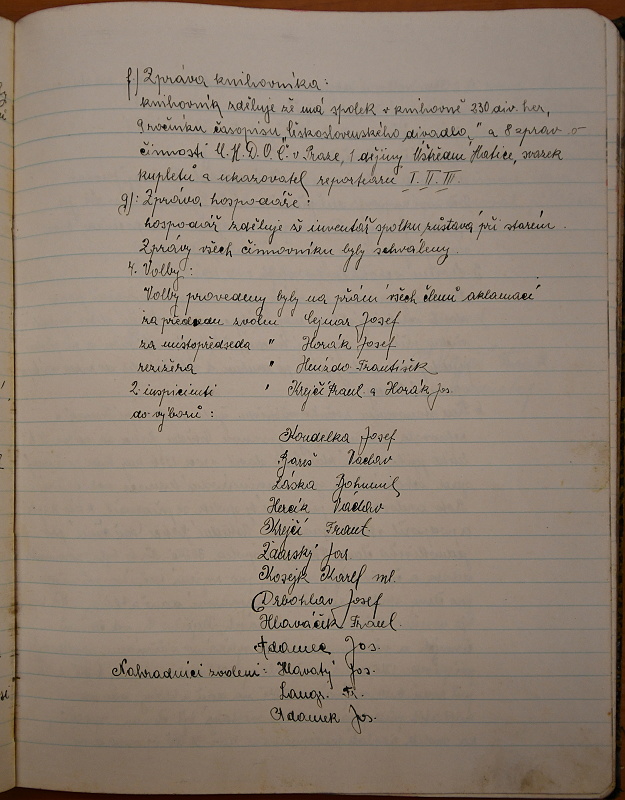 f) Zpráva knihovníka:
knihovník zděluje že má spolek v knihovně 230 div. her,
9 ročníku časopisu „Československého divadla" a 8 zpráv o
činnosti Ú.M.D.O.Č. v Praze, 1 dějiny Ústřední Matice, svazek
kupletů a ukazovatel repertoiru I. II. III.
g): Zpráva hospodáře:
hospodář zděluje že inventář spolku zůstává při starém.
Zprávy všech činovníku byly schváleny.
4. Volby:
Volby provedeny byly na přání všech členů aklamací
za předsedu zvolen Cejnar Josef
za místopředseda " Horák Josef
režiséra " Hnízdo František
2 inspicienti " Krejčí Frant. a Horák Jos.
do výborů:
Koudelka Josef
Bareš Václav
Láska Bohumil
Hercík Václav
Krejčí Frant.
Žďárský Jos.
Kosejk Karel ml.
Drbohlav Josef
Hlaváčik Frant.
Adamec Jos.
Nahradníci zvoleni: Hlavatý Jos.
Langr Fr.
Adamek Jos.